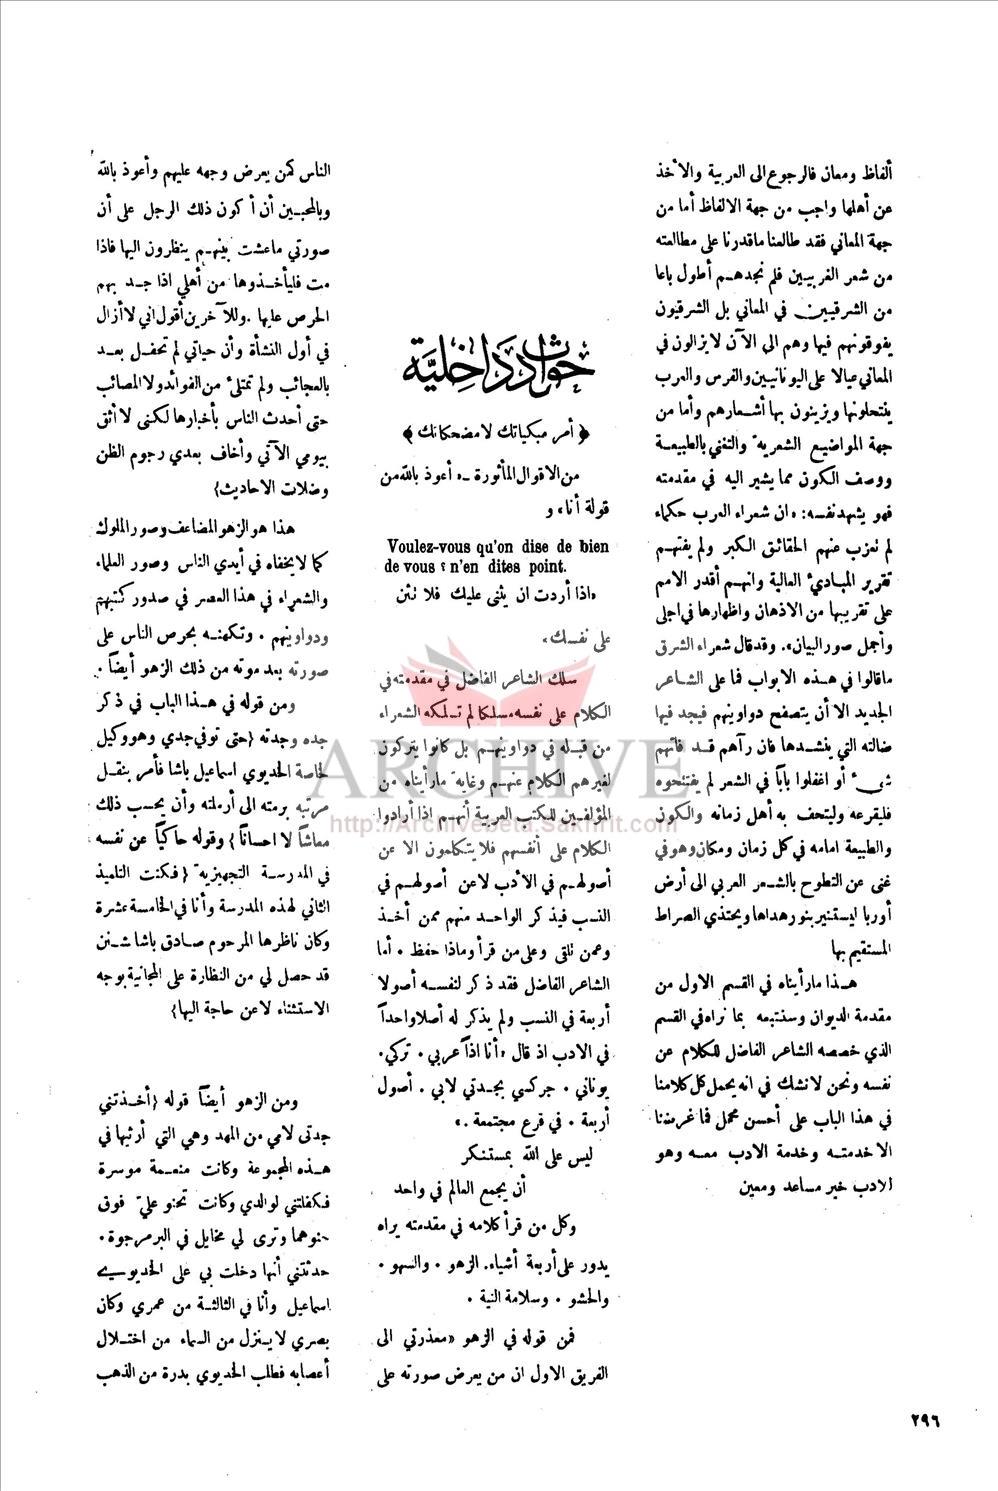 ألفاظ ومعان فالرجوع الى العربية والأخذ
عن أهلها واجب من جهة الالفاظ أما من
جهة المعاني فقد طالعنا ماقدرنا على مطالعته
من شعر الغربيين فلم نجدهم أطول باعا
من الشرقيين في المعاني بل الشرقيون
يفوقونهم فيها وهم الى الآن لايزالون في
المعاني عيالا على اليونانيين والفرس والعرب
ينتحلونها ويزينون بها أشعارهم وأما من
جهة المواضيع الشعرية والتغني بالطبيعة
ووصف الكون مما يشير اليه في مقدمته
فهو يشهد نفسه: «ان شعراء العرب حكماء
لم تعزب عنهم الحقائق الكبر ولم يفتهم
تقرير المبادئ العالية وانهم أقدر الامم
على تقريبها من الاذهان واظهارها في اجلى
وأجمل صور البيان». وقد قال شعراء الشرق
ماقالوا في هذه الابواب فما على الشاعر
الجديد الا أن يتصفح دواوينهم فيجد فيها
ضالته التي ينشدها فان رآهم قد فاتهم
شئ أو اغفلوا بابًا في الشعر لم يفتحوه
فليقرعه وليتحف به أهل زمانه والكون
والطبيعة امامه في كل زمان ومكان وهو في
غنى عن التطوح بالشعر العربي الى أرض
أوربا ليستنير بنورهداها ويحتذي الصراط
المستقيم بها
هذا مارأيناه في القسم الاول من
مقدمة الديوان وسنتبعه بما نراه في القسم
الذي خصصه الشاعر الفاضل للكلام عن
نفسه ونحن لانشك في انه يحمل كل كلامنا
في هذا الباب على أحسن محمل فما غرضنا
الا خدمته وخدمة الادب معه وهو
لادب خير مساعد ومعين
حوادث داخلية
﴿ أمر مبكياتك لا مضحكاتك ﴾
من الاقوال المأثورة ــ «أعوذ بالله من
قولة أنا» و
Voulez-vous qu'on dise de bien
de vous ? n'en dites point.
«اذا أردت ان يثنى عليك فلا تثن
على نفسك»
سلك الشاعر الفاضل في مقدمته في
الكلام على نفسه مسلكا لم تسلكه الشعراء
من قبله في دواوينهم بل كانوا يتركون
لغيرهم الكلام عنهم وغاية مارأيناه من
المؤلفين للكتب العربية أنهم اذا أرادوا
الكلام على أنفسهم فلا يتكلمون الا عن
أصولهم في الأدب لاعن أصولهم في
النسب فيذكر الواحد منهم ممن أخذ
وعمن تلقى وعلى من قرأ وماذا حفظ . أما
الشاعر الفاضل فقد ذكر لنفسه أصولا
أربعة في النسب ولم يذكر له أصلا واحداً
في الادب اذ قال «أنا اذاً عربي . تركي.
يوناني . جركسي بجدتي لابي . أصول
أربعة . في فرع مجتمعة .»
ليس على الله بمستنكر
أن يجمع العالم في واحد
وكل من قرأ كلامه في مقدمته يراه
يدور على أربعة أشياء. الزهو . والسهو .
والحشو . وسلامة النية .
فمن قوله في الزهو «معذرتي الى
الفريق الاول ان من يعرض صورته على
الناس كمن يعرض وجهه عليهم وأعوذ بالله
وبالمحبين أن أكون ذلك الرجل على أن
صورتي ماعشت بينهم ينظرون اليها فاذا
مت فليأخذوها من أهلي اذا جد بهم
الحرص عليها .وللآخرين أقول اني لا أزال
في أول النشأة وأن حياتي لم تحفل بعد
بالعجائب ولم تمتلئ من الفوائد ولا المصائب
حتى أحدث الناس بأخبارها لكنى لا أثق
بيومي الآتي وأخاف بعدي رجوم الظن
وضلات الاحاديث}
هذا هو الزهو المضاعف وصور الملوك
كما لايخفاه في أيدي الناس وصور العلماء
والشعراء في هذا العصر في صدور كتبهم
ودواوينهم . وتكهنه بحرص الناس على
صورته بعد موته من ذلك الزهو أيضاً .
ومن قوله في هذا الباب في ذكر
جده وجدته {حتى توفي جدي وهو وكيل
لخاصة الخديوي اسماعيل باشا فأمر بنقل
مرتبه برمته الى أرملته وأن يحسب ذلك
معاشاً لا احساناً} وقوله حاكياً عن نفسه
في المدرسة التجهيزية {فكنت التلميذ
الثاني لهذه المدرسة وأنا في الخامسة عشرة
وكان ناظرها المرحوم صادق باشا شنن
قد حصل لي من النظارة على المجانية بوجه
الاستثناء لاعن حاجة اليها}
ومن الزهو أيضاً قوله {أخذتني
جدتى لامي من المهد وهي التي أرثيها في
هذه المجموعة وكانت منعمة موسرة
فكفلتني لوالدي وكانت تحنو عليّ فوق
حنوهما وترى لي مخايل في البر مرجوة.
حدثتني أنها دخلت بي على الخديوي
اسماعيل وأنا في الثالثة من عمري وكان
بصري لا ينزل من السماء من اختلال
أعصابه فطلب الخديوي بدرة من الذهب
٢٩٦
ARCHIVE
http://Archivebeta.Sakhrit.com